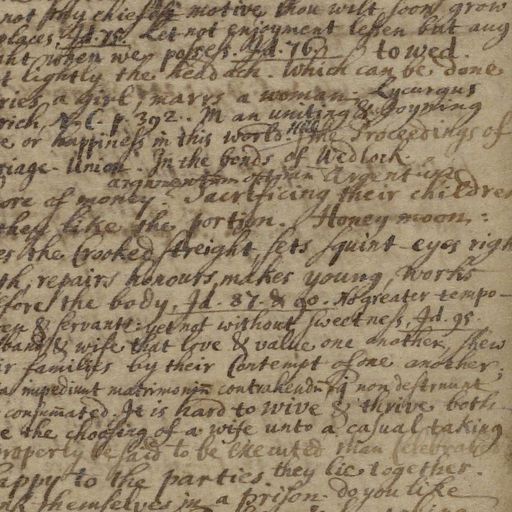 not thy chiefest motive thou wilt soon grow
places. Id. 75. Let not enjoyment lessen but aug
ht when we possess. Id. 76. to wed.
t lightly the head ach. Which can be done
ries a girl, marrs a woman. Lycurgus
rich, N. C. p. 392. An uniting & joyning
e or happiness in this world. The Proceedings of
riage-Union. In the bonds of Wedlock.
argumentum optimum Argentum
ore of money. Sacrificing their children
they like the portion. Honey moon:
es the Crooked streight, sets squint-eyes righ
th, repairs honours, makes young, works
efore the body. Id. 87. & 90. No greater tempo-
en & servants: yet not without sweetness. Id. 95
sband & wife that love & value one another, shew
ir families by their Contempt of one another;
a impediunt matrimonium contrahendum non destruunt
consummated. It is hard to wive & thrive both
e the choosing of a wife unto a casual taking
properly be said to be executed than Celebrated
appy to the parties they lie together.
nk themselves in a prison. do you like